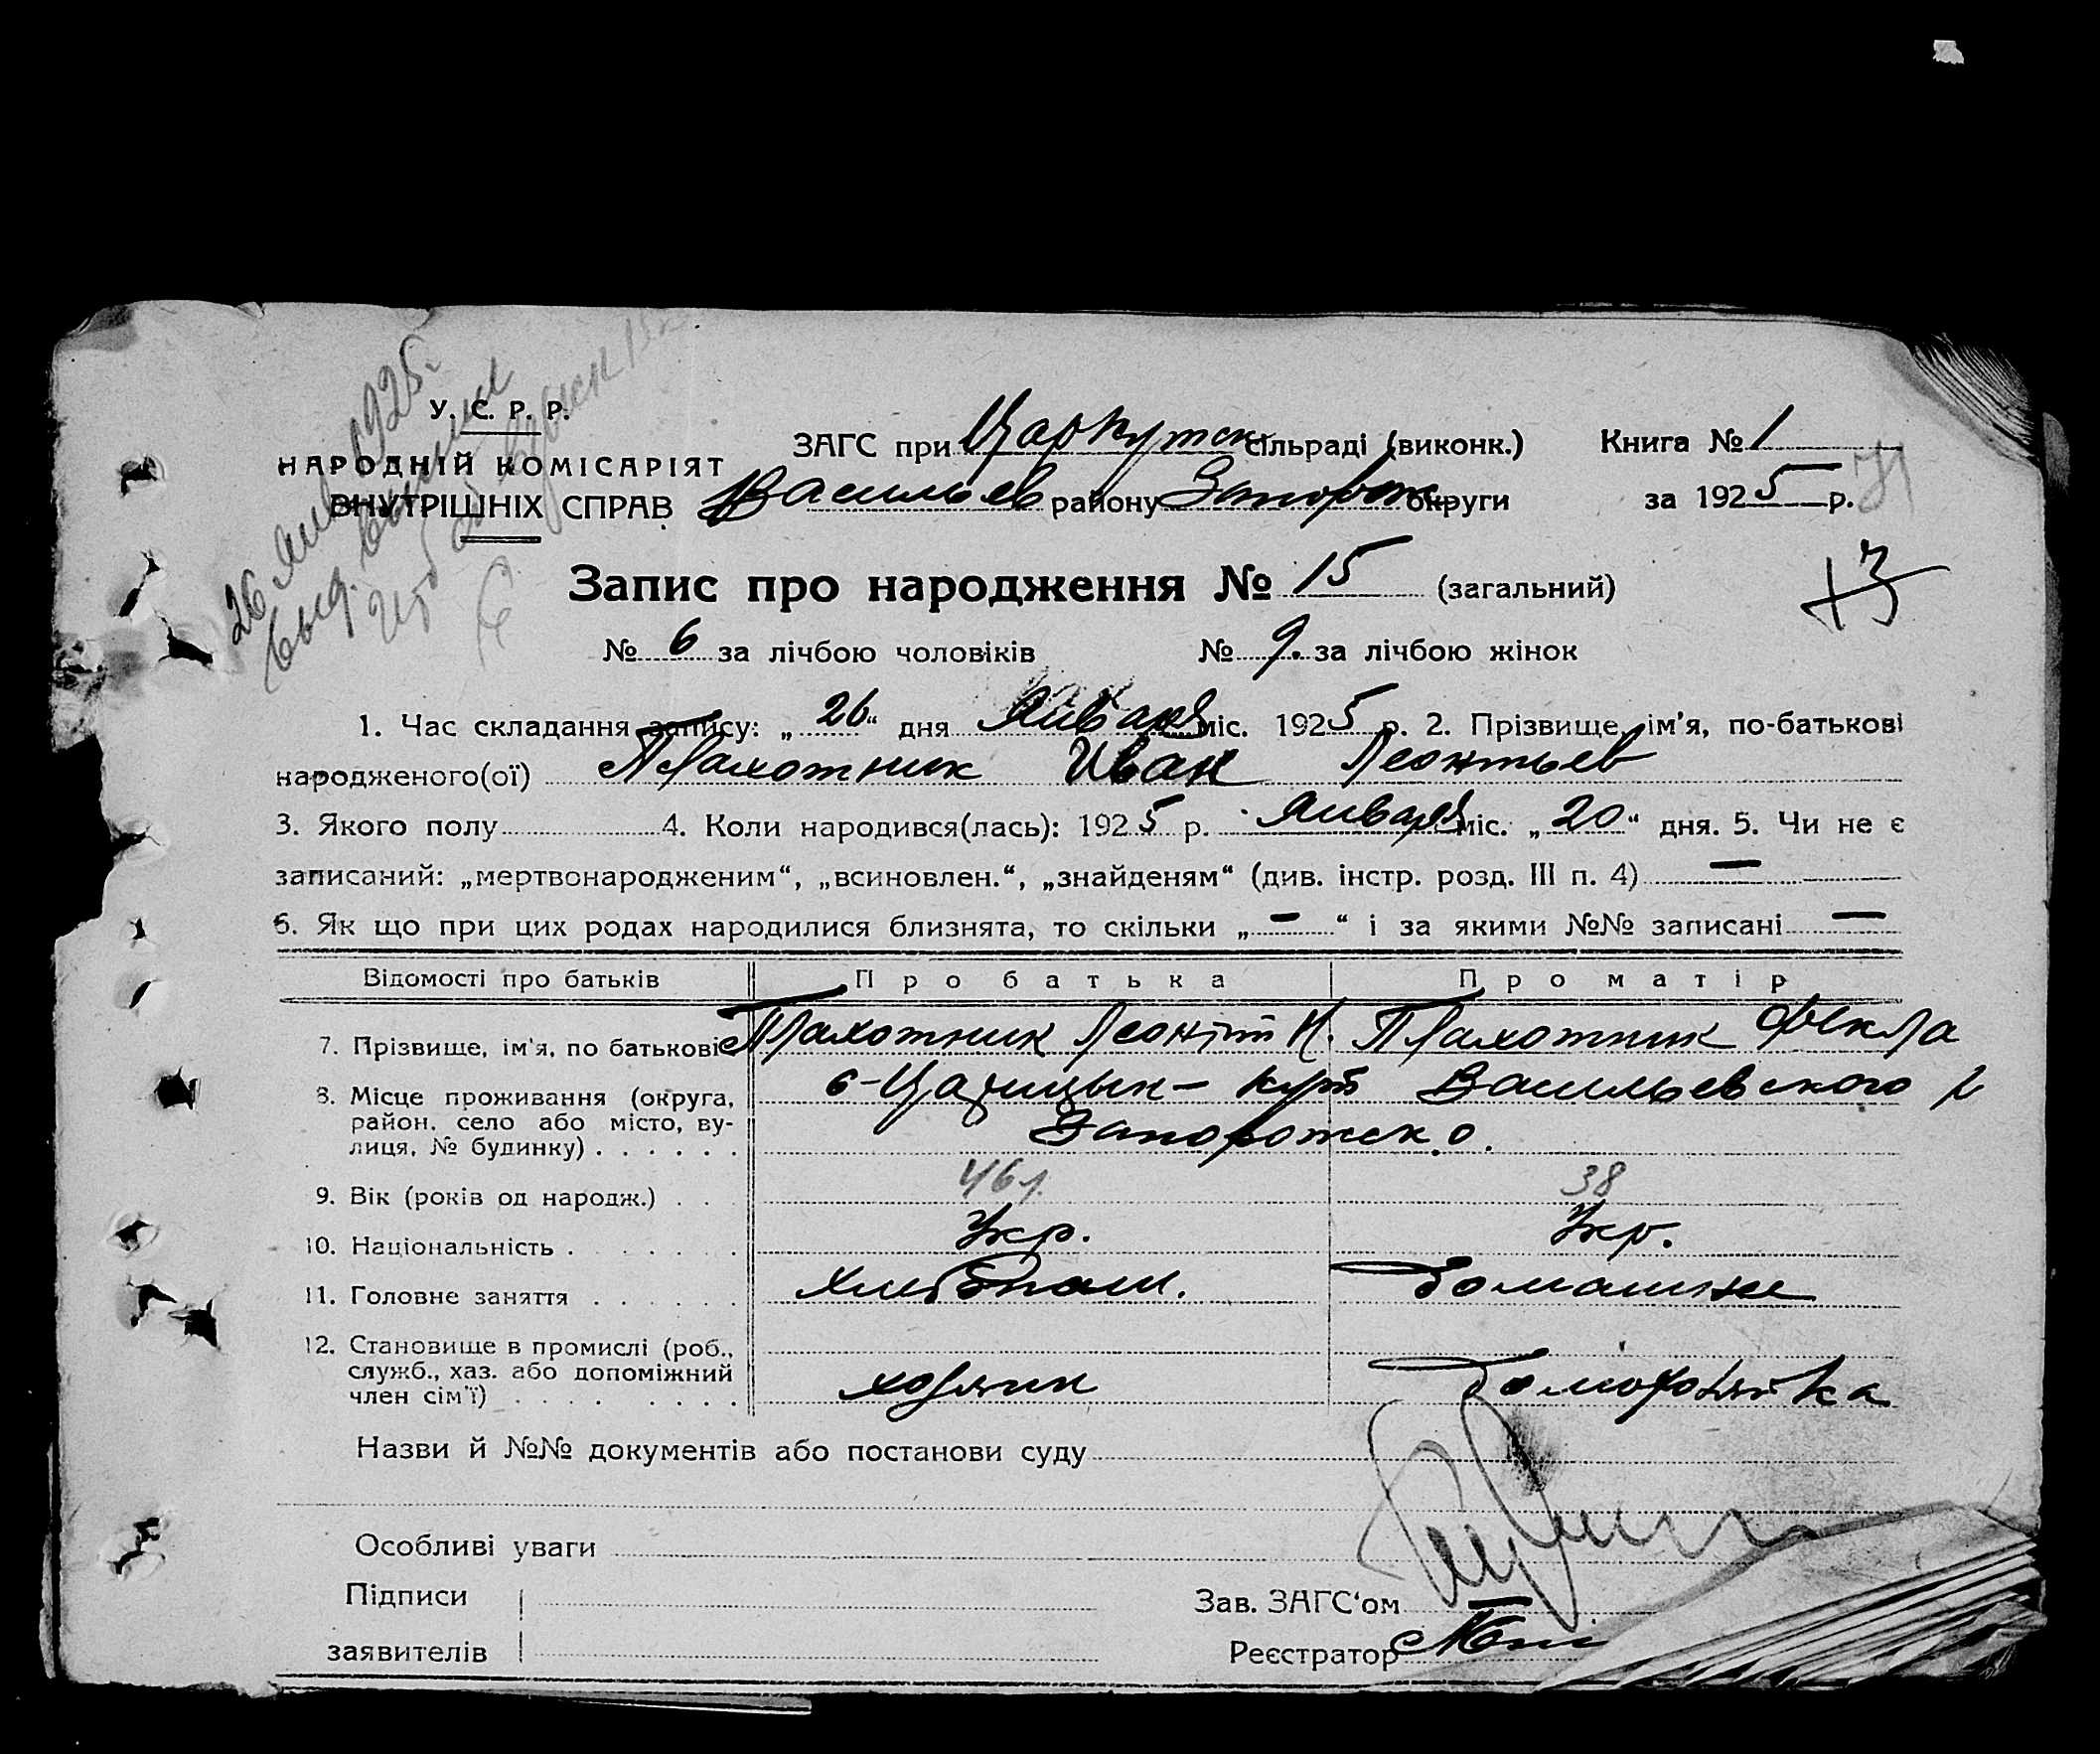 26 Янв 1925 г.
Выд. выпись
У. С. Р. Р.
НАРОДНІЙ КОМІСАРІЯТ
ВНУТРІШНІХ СПРАВ
ЗАГС при Царкутск сільраді (виконк.) Книга № 1
Васильев району Запорож округи за 1925 р.
Запис про народження № 15 (загальний)
№ 6 за лічбою чоловіків № 9. за лічбою жінок
1. Час складання запису: „26“ дня Января міс. 1925 р. 2. Прізвище, ім'я, по-батькові
народженого(ої) Плахотник Иван Леонтьев
3. Якого полу 4. Коли народився(лась): 1925 р. Января міс. „20“ дня. 5. Чи не є
записаний: „мертвонародженим“, „всиновлен.“, „знайденям“ (див. інстр. розд. III п. 4) —
6. Як що при цих родах народилися близнята, то скільки „—“ і за якими №№ записані —
Відомості про батьків Про батька Про матір
7. Прізвище, ім'я, по батькові Плахотник Леонтій И. Плахотник Фекла
8. Місце проживання (округа, с-Царицын-кут Васильевского р
район, село або місто, ву-
лиця, № будинку) Запорожск. о.
9. Вік (років од народж.) 46 л. 38
10. Національність Укр. Укр.
11. Головне заняття хлибопаш. Домашнее
12. Становище в промислі (роб.,
служб., хаз. або допоміжний
член сім'ї) хозяин Домохозяйка
Назви й №№ документів або постанови суду
Особливі уваги
Підписи
заявителів
Зав. ЗАГС'ом
Реєстратор